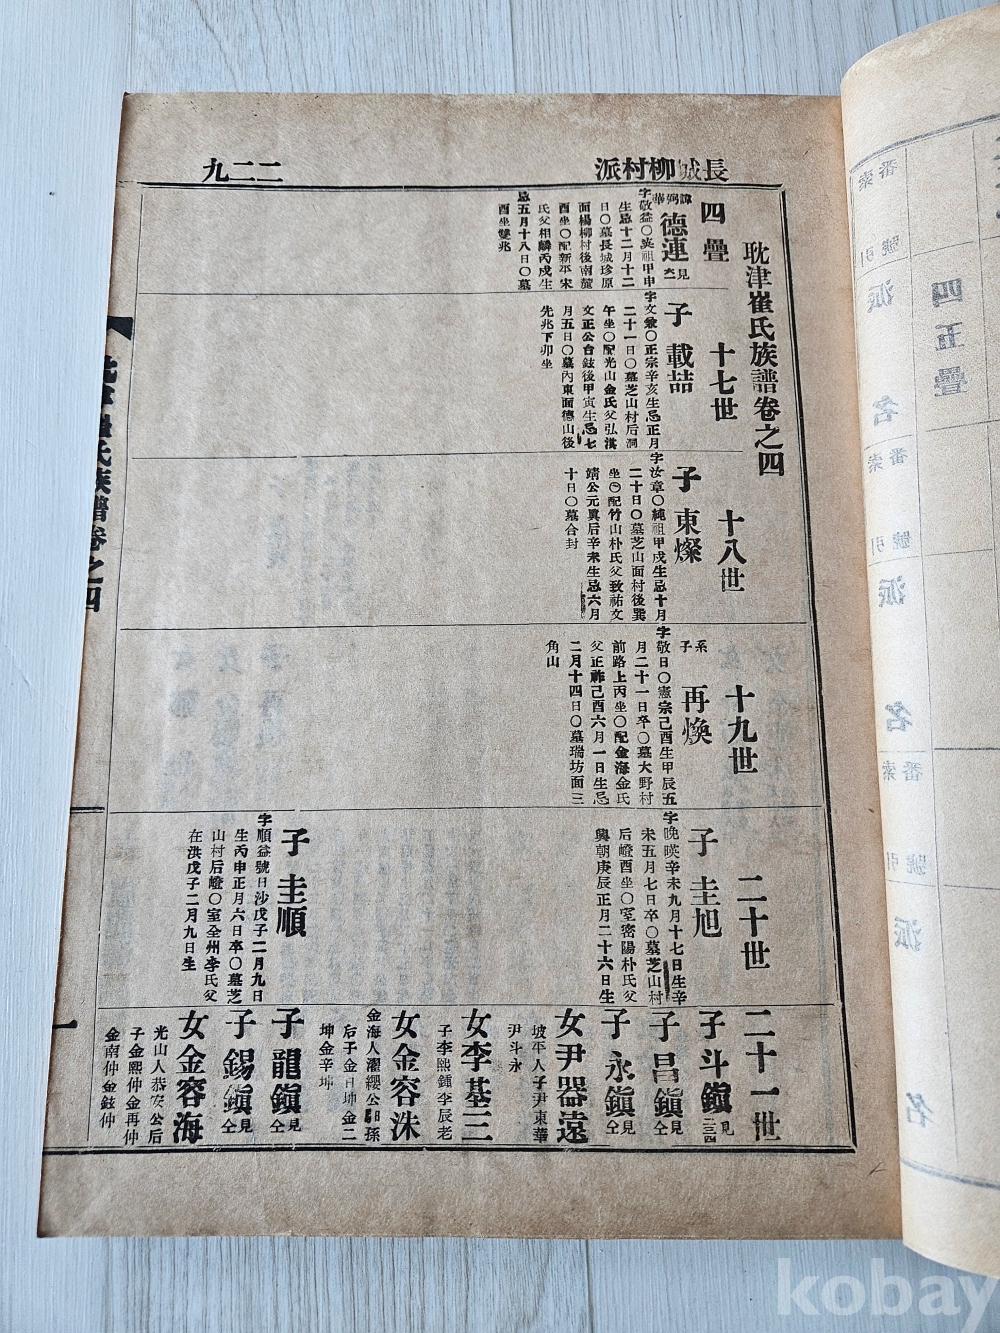 長城柳村派
二二九
耽津崔氏族譜卷之四
四疊
德連
見
字敬益〇英祖甲申
生忌十二月十二
日〇墓長城珍原
面楊柳村後南麓
酉坐〇配新平宋
氏父相麟丙戌生
忌五月十八日〇墓
酉坐雙兆
十七世
子 載喆
正宗辛亥生忌正月
二十一日〇墓芝山村后洞
午坐〇配光山金氏父弘淇
文正公台鉉後甲寅生忌七
月五日〇墓內東面德山後
先兆下卯坐
十八世
子 東燦
字汝章〇純祖甲戌生忌十月
二十日〇墓芝山面村後巽
坐〇配竹山朴氏父致祐文
靖公元異后辛未生忌六月
十日〇墓合封
十九世
系子 再煥
字敬日〇憲宗己酉生甲辰五
月二十一日卒〇墓大野村
前路上丙坐〇配金海金氏
父正祚己酉六月一日生忌
二月十四日〇墓瑞坊面三
角山
二十世
子 圭旭
字晚暎辛未九月十七日生辛
未五月七日卒〇墓芝山村
后嶝酉坐〇室密陽朴氏父
興朝庚辰正月二十六日生
子 圭順
字順益號日沙戊子二月九日
生丙申正月六日卒〇墓芝
山村后嶝〇室全州李氏父
在洪戊子二月九日生
二十一世
子斗鎭 見二三四
子昌鎭 見仝
子永鎭 見仝
女尹器遠
坡平人子尹東華
尹斗永
女李基三
子李熙鍾李辰老
女金容洙
金海人濯纓公馹孫
后子金日坤金二
坤金辛坤
子龍鎭 見仝
子錫鎭 見仝
女金容海
光山人恭安公后
子金熙仲金再仲
金南仲金鉉仲
氏族譜卷之四
一
四五疊
番號 索引
派
名
番號 索引
派
名
番號 索引
派
名
kobay